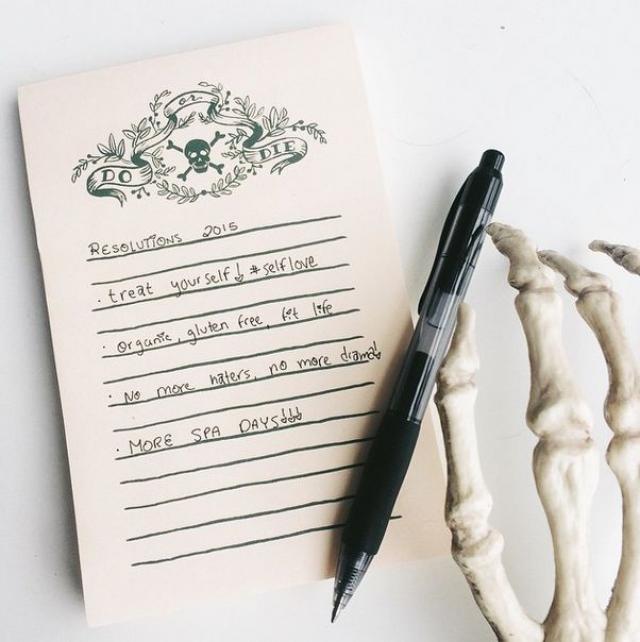 DO OR DIE
RESOLUTIONS 2015
· treat yourself! #selflove
· organic, gluten free, fit life
· No more haters, no more drama!
· MORE SPA DAYS!!!